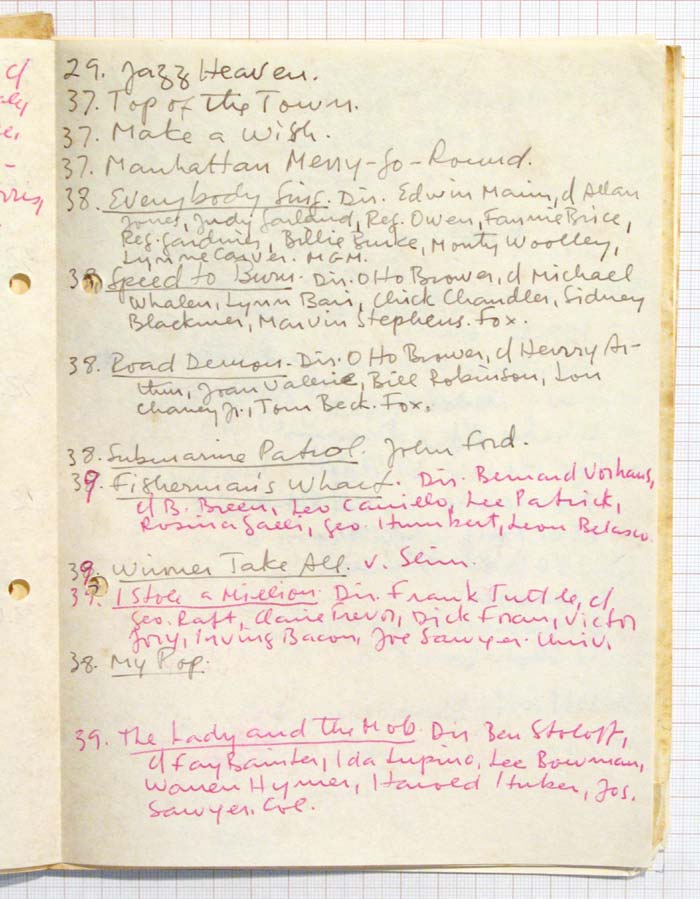 d
ly
e,
-
rris,
29. Jazz Heaven.
37. Top of the Town.
37. Make a Wish.
37. Manhattan Merry-Go-Round.
38. Everybody Sing. Dir. Edwin Marin, d Allan
Jones, Judy Garland, Reg. Owen, Fannie Brice,
Reg. Gardiner, Billie Burke, Monty Woolley,
Lynne Carver. MGM.
38 Speed to Burn. Dir. Otto Brower, d Michael
Whalen, Lynn Bari, Chick Chandler, Sidney
Blackmer, Marvin Stephens. Fox.
38. Road Demon. Dir. Otto Brower, d Henry Ar-
thur, Joan Valerie, Bill Robinson, Lon
Chaney Jr., Tom Beck. Fox.
38. Submarine Patrol. John Ford.
39 Fisherman's Wharf. Dir. Bernard Vorhaus,
d B. Breen, Leo Carrillo, Lee Patrick,
Rosina Galli, Geo. Humbert, Leon Belasco.
39. Winner Take All. v. Slim.
39. I Stole a Million. Dir. Frank Tuttle, d
Geo. Raft, Claire Trevor, Dick Foran, Victor
Jory, Irving Bacon, Joe Sawyer. Univ.
38. My Pop.
39. The Lady and the Mob. Dir. Ben Stoloff,
d Fay Bainter, Ida Lupino, Lee Bowman,
Warren Hymer, Harold Huber, Jos.
Sawyer. Col.